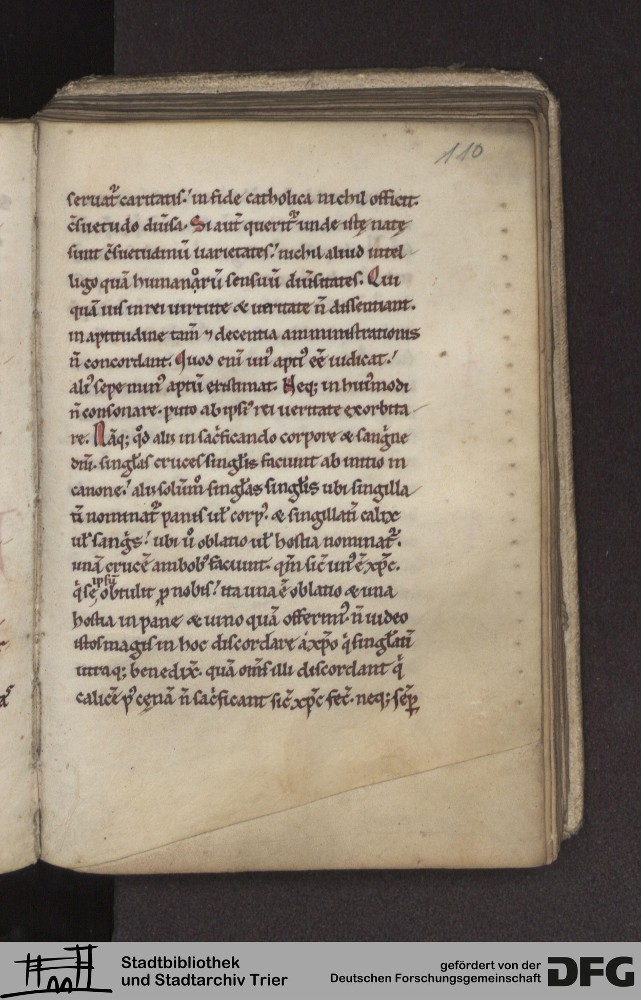 110
seruat᷑ caritatis.' in fide catholica nichil officit.
c̄suetudo diu̾sa. Si aut̄ querit᷑ unde istę natę
sunt c̄suetudinū uarietates.' nichil aliud intel
ligo quā humanoꝝ sensuū diu̾sitates. Qui
quā uis in rei uirtute & ueritate n̄ dissentiant.
in aptitudine tam̄ ⁊ decentia amministrationis
n̄ concordant. Quod eni᷑ un᷒ aptū eē iudicat.'
ali᷒ sepe min᷒ aptū existimat. Neq; in hui᷒modi
n̄ consonare. puto ab ipsi᷒ rei ueritate exorbita
re. Nāq; qd̄ alii in sac̾ficando corpore & sanguine
dn̄i. singl̄as cruces singl̄is faciunt ab initio in
canone.' alii solūm̊ singl̄as singl̄is ubi singilla
tī nominat᷑ panis ul̄ corp᷒. & singillatī calix
ul̄ sangͥs.' ubi ů oblatio ul̄ hostia nominat᷑.
unā crucē ambob᷒ faciunt. qm̄ sic̄ un᷒ ē xp̄c.
qͥ se ipsū obtulit ꝓ nobis.' ita una ē oblatio & una
hostia in pane & uino quā offerim᷒. n̄ uideo
istos magis in hoc discordare a xp̄o qͥ singl̄atī
utraq; benedix̄. quā om̄s illi discordant qͥ
calicē p᷒ cęnā n̄ sac̾ficant sic̄ xp̄c fec̄. neq; semꝑ
Stadtbibliothek
und Stadtarchiv Trier
gefördert von der
Deutschen Forschungsgemeinschaft
DFG